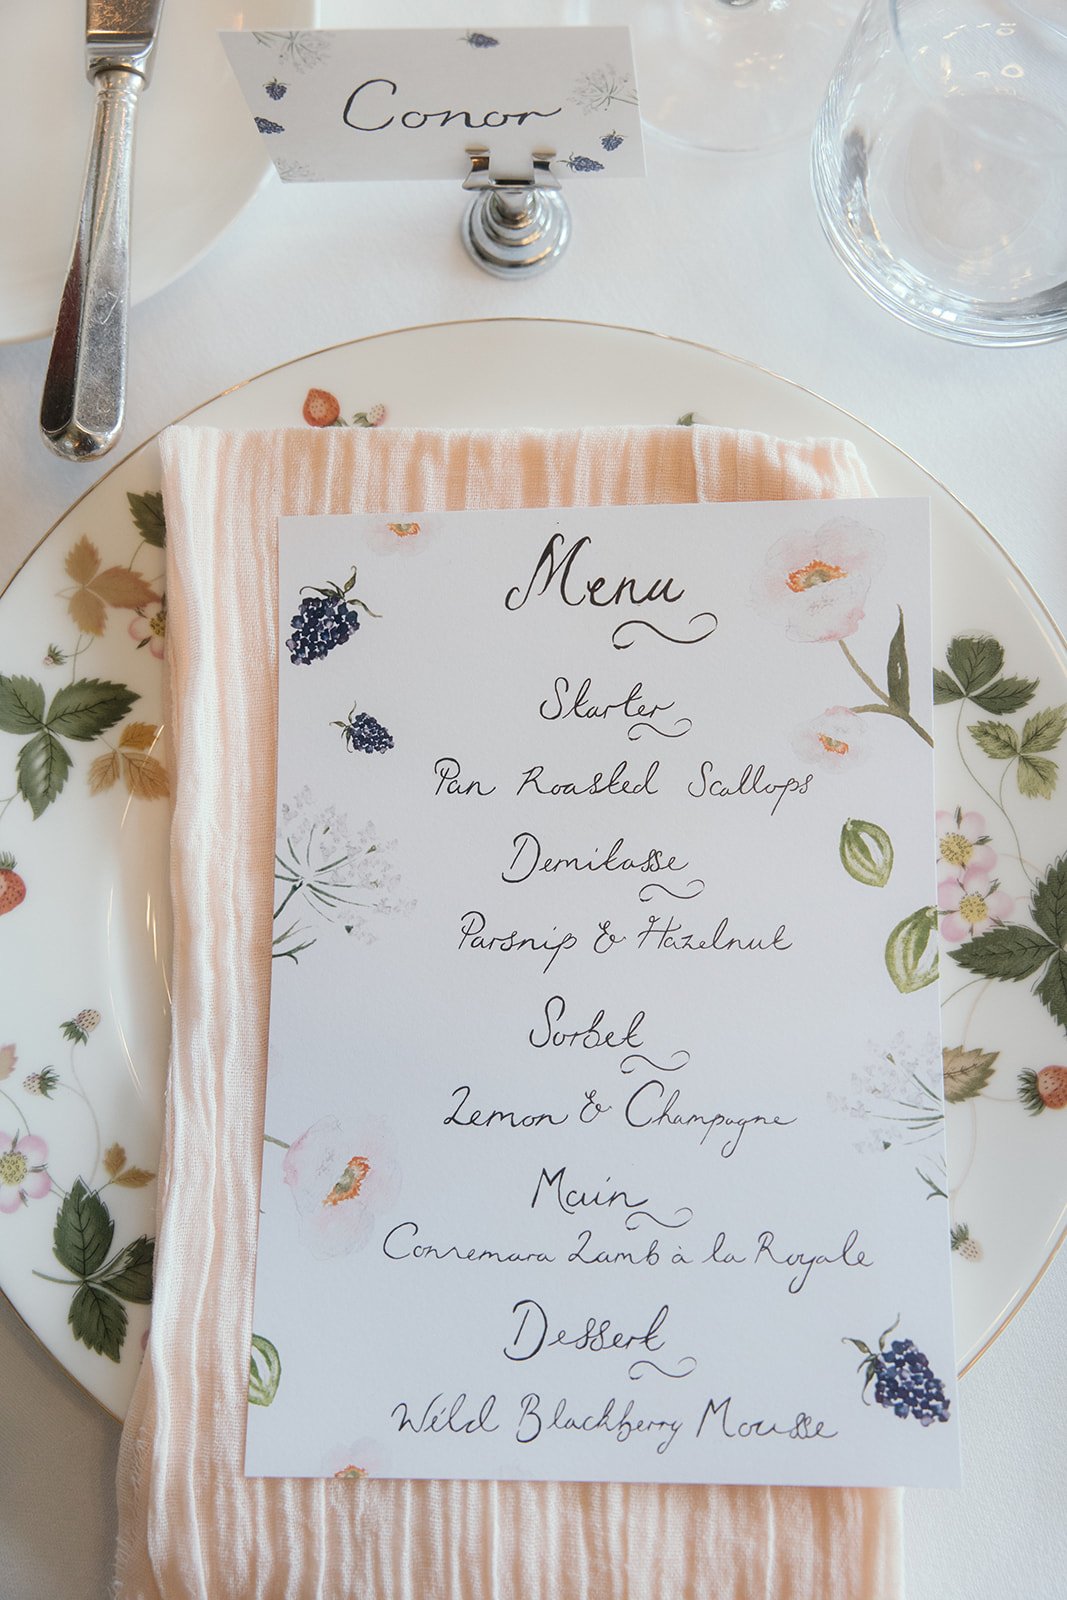 Conor
Menu
Starter
Pan Roasted Scallops
Demitasse
Parsnip & Hazelnut
Sorbet
Lemon & Champagne
Main
Connemara Lamb à la Royale
Dessert
Wild Blackberry Mousse